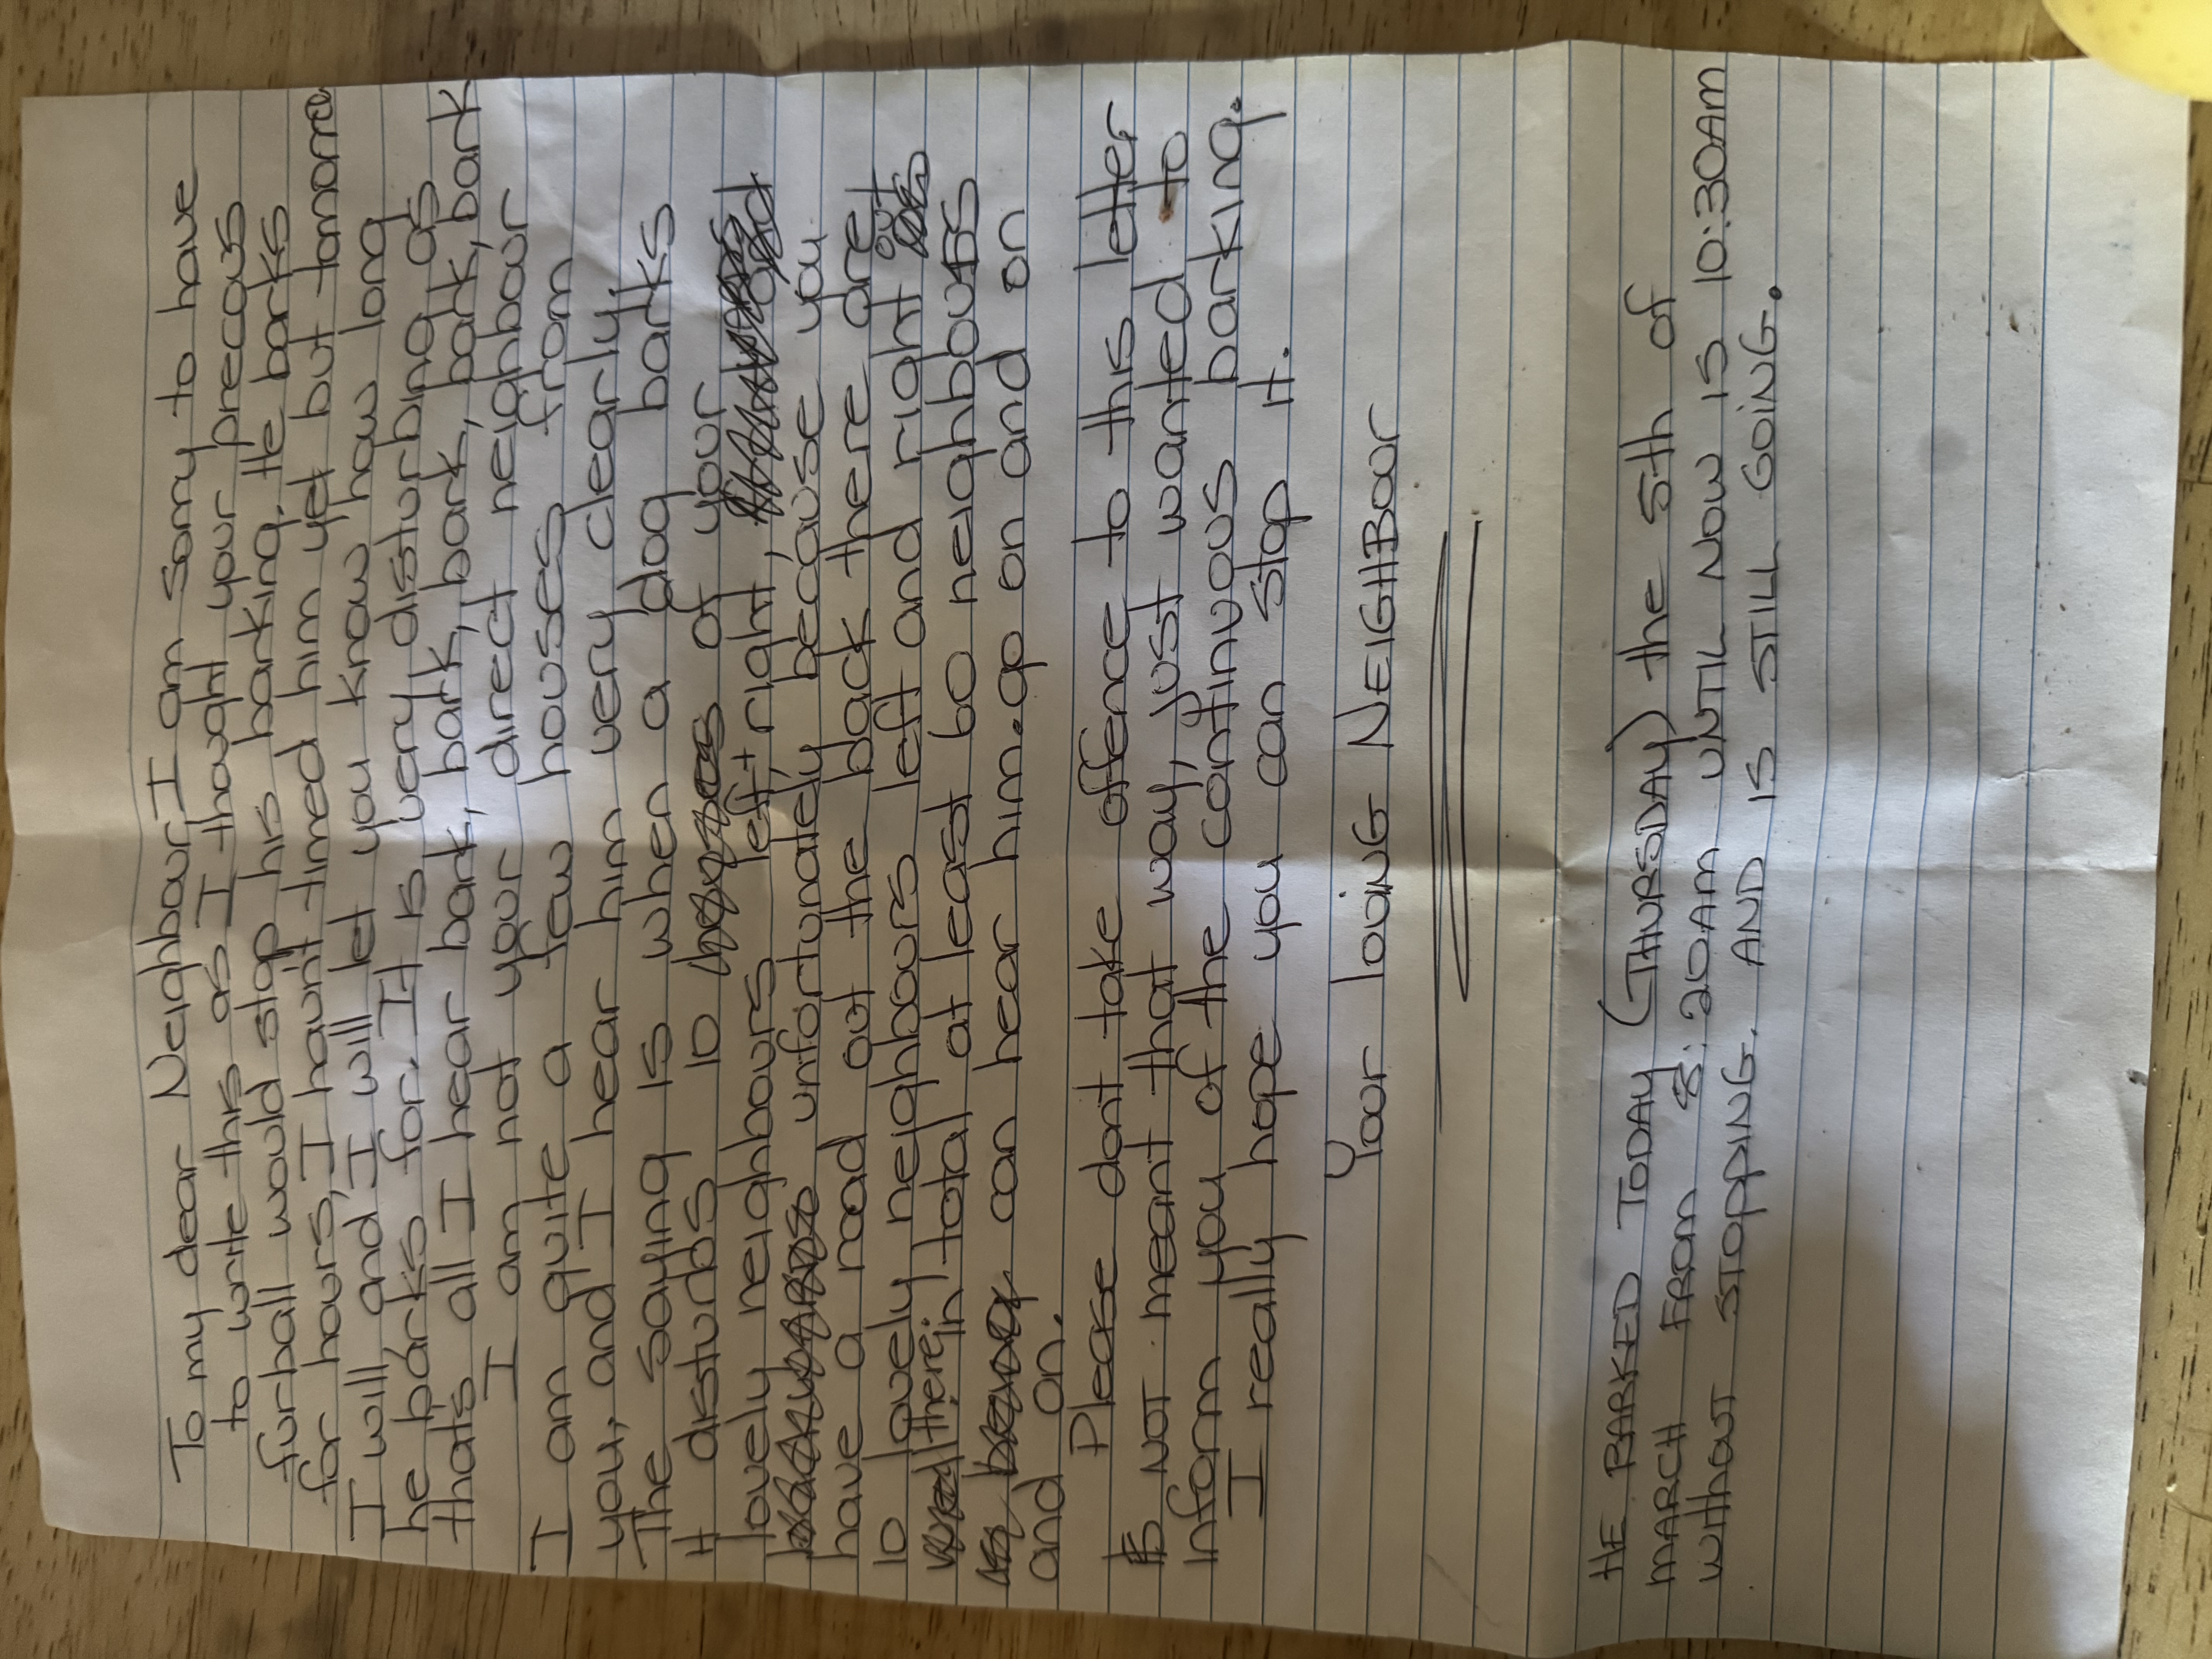 To my dear Neighbour, I am sorry to have
to write this as I thought your precous
furball would stop his barking. He barks
for hours, I havn't timed him yet but tomorro
I will and I will let you know how long
he barks for. It is very disturbing as
thats all I hear bark, bark, bark, bark, bark, bark
I am not your direct neighbour
I am quite a few houses from
you, and I hear him very clearly.
The saying is when a dog barks
it disturbs 10 of your
lovely neighbours left + right,
unfortunately because you
have a road out the back there are
10 lovely neighbours left and right out
there, in total at least 60 neighbours
can hear him. go on and on
and on.
Please dont take offence to this letter
is NOT meant that way, just wanted to
inform you of the continuous barking.
I really hope you can stop it.
Your loving NEIGHBour
HE BARKED TODAY (THURSDAY) the 5th of
MARCH FROM 8:20AM UNTIL NOW IS 10:30AM
without STOPPING. AND IS STILL GOING.